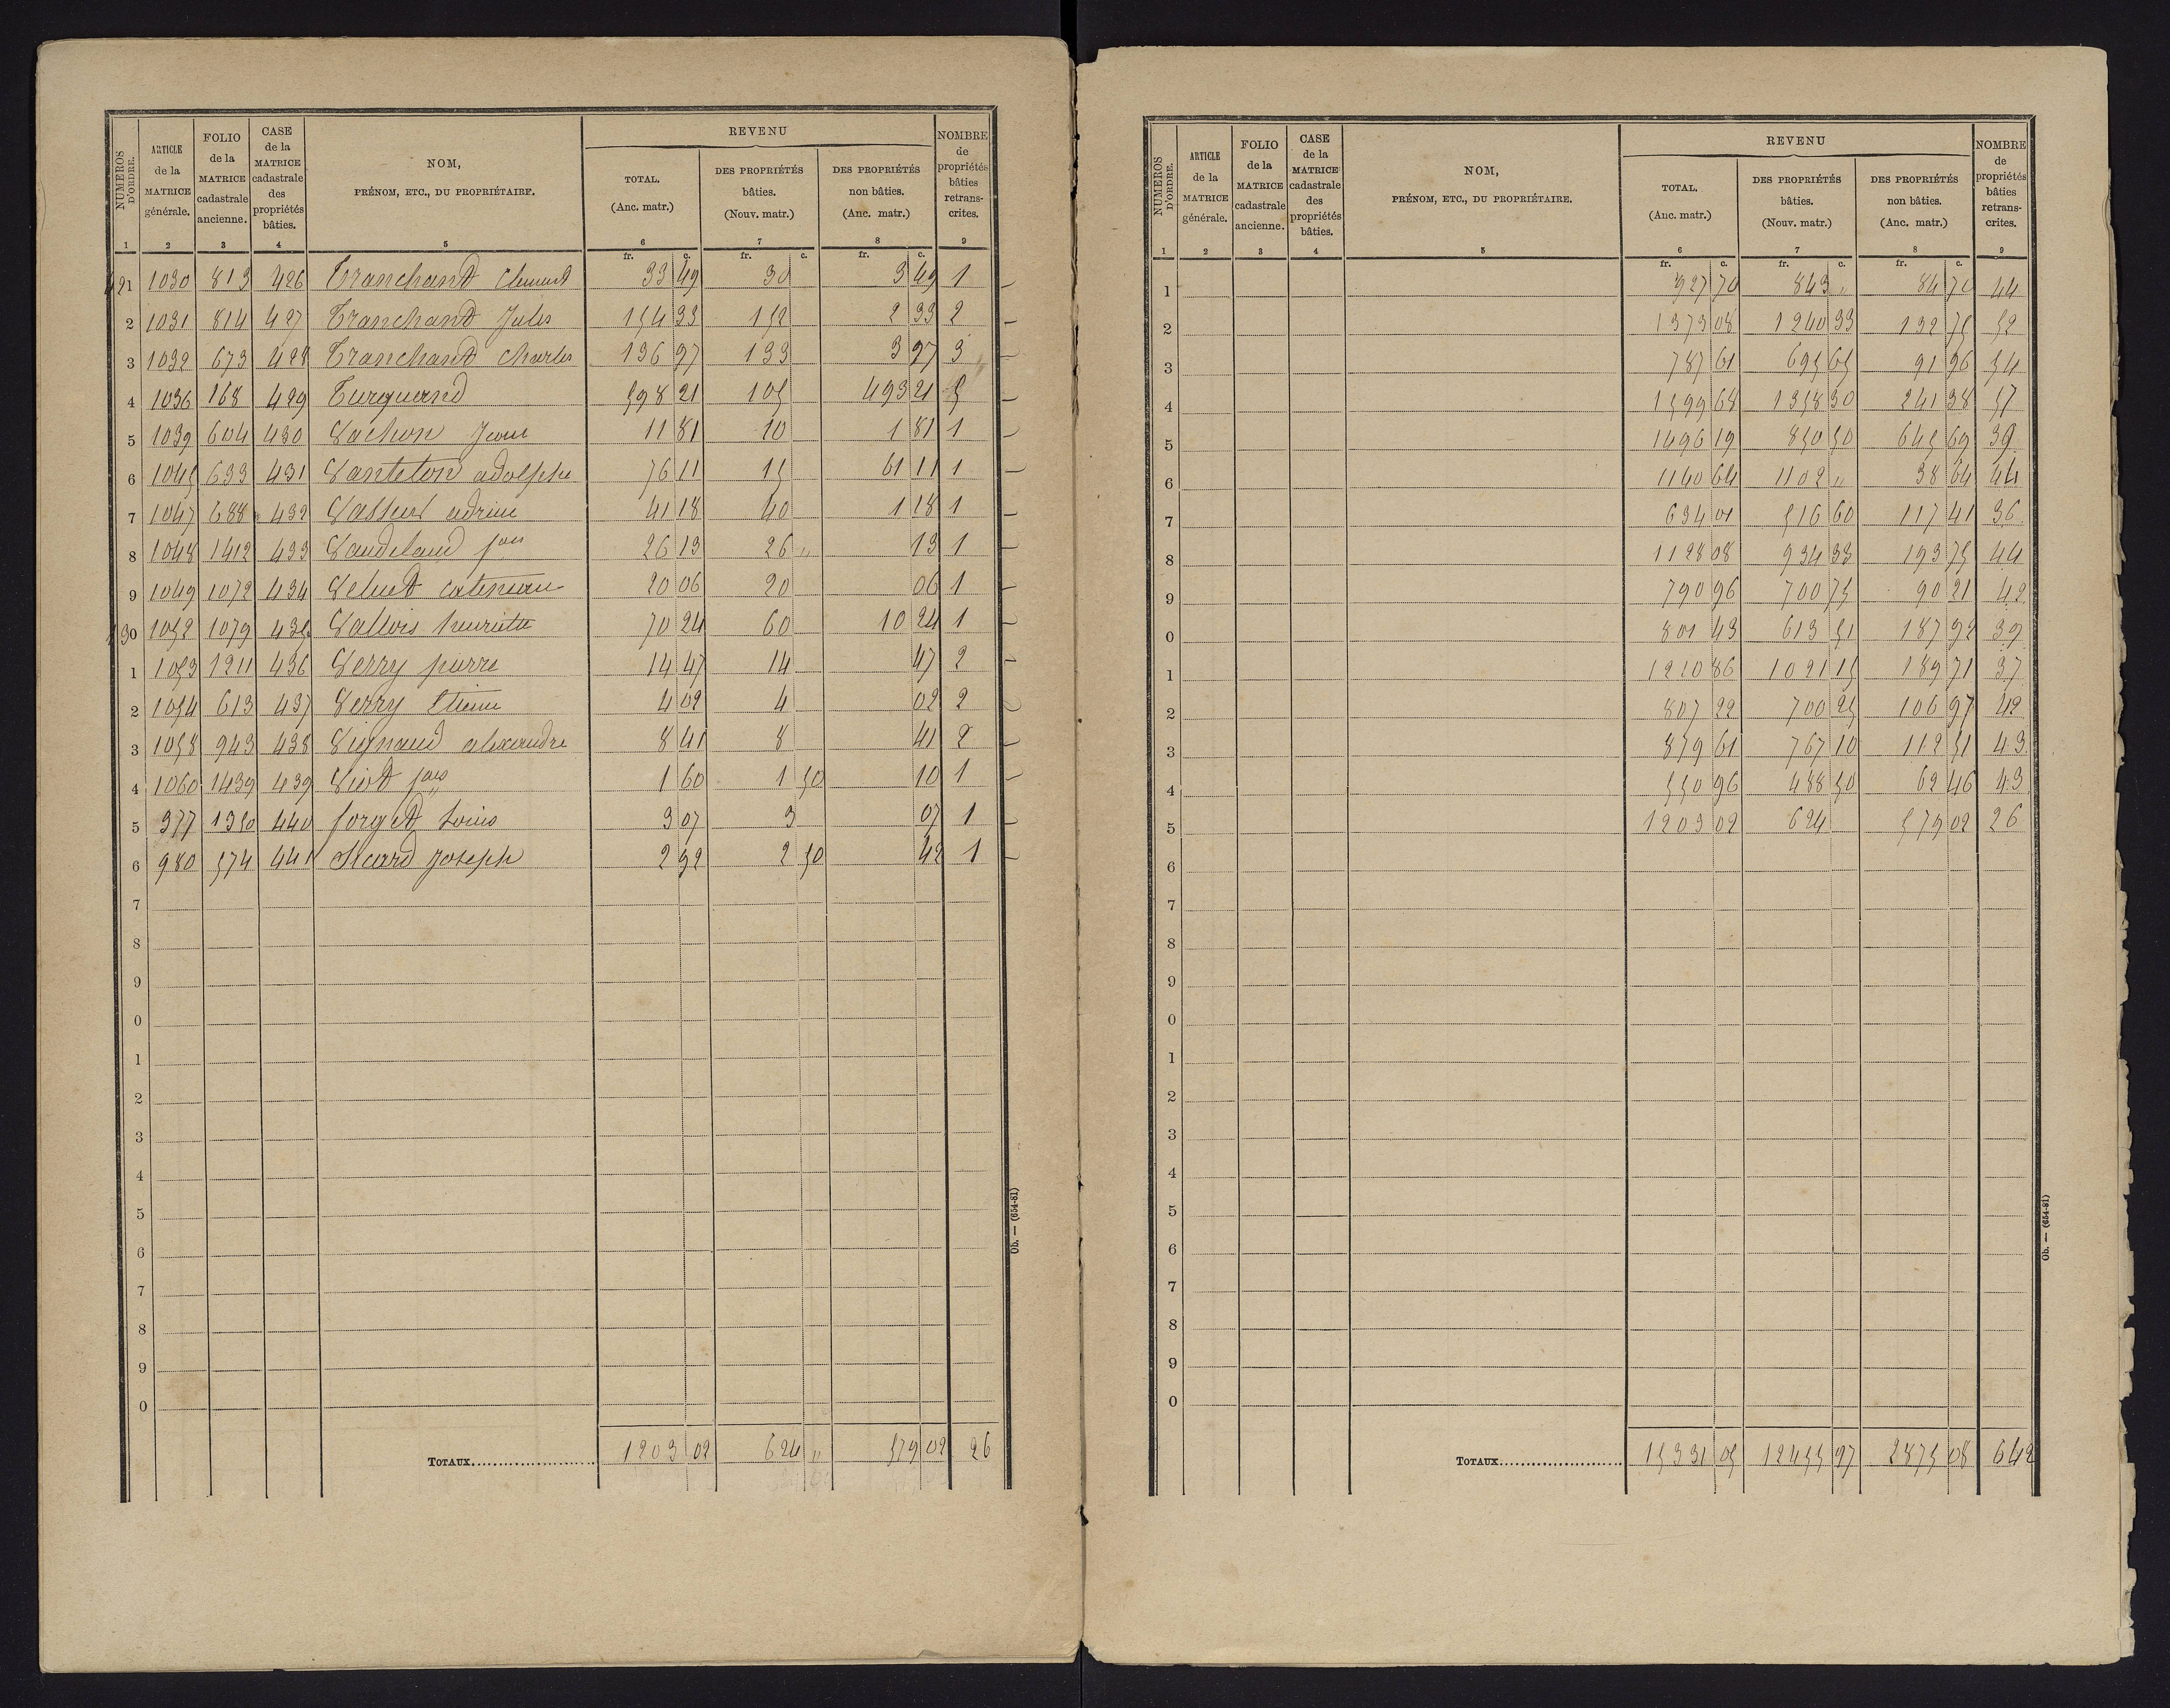 NUMÉROS D'ORDRE. ARTICLE de la MATRICE générale. FOLIO de la MATRICE cadastrale ancienne. CASE de la MATRICE cadastrale des propriétés bâties. NOM, PRÉNOM, ETC., DU PROPRIÉTAIRE. REVENU TOTAL. (Anc. matr.) DES PROPRIÉTÉS bâties. (Nouv. matr.) DES PROPRIÉTÉS non bâties. (Anc. matr.) NOMBRE de propriétés bâties retranscrites.
1 2 3 4 5 6 7 8 9
fr. c. fr. c. fr. c.
421 1030 813 426 Tranchant Clement 33 49 30 3 49 1
2 1031 814 427 Tranchant Jules 154 33 152 2 33 2
3 1032 673 428 Tranchant Charles 136 97 133 3 97 3
4 1036 168 429 Turquand 598 21 105 493 21 5
5 1039 604 430 Vachon Jean 11 81 10 1 81 1
6 1045 633 431 Vanteton adolphe 76 11 15 61 11 1
7 1047 688 432 Vasseur adrien 41 18 40 1 18 1
8 1048 1412 433 Vaudeland 26 13 26 " 13 1
9 1049 1072 434 Veluet 20 06 20 06 1
430 1052 1079 435 Vallois henriette 70 24 60 10 24 1
1 1053 1211 436 Verry pierre 14 47 14 47 2
2 1054 613 437 Verry Etienne 4 02 4 02 2
3 1058 943 438 Vignaud alexandre 8 41 8 41 2
4 1060 1439 439 Viot 1 60 1 50 10 1
5 377 1350 440 forget Louis 3 07 3 07 1
6 980 574 441 Sicard Joseph 2 92 2 50 42 1
7
8
9
0
1
2
3
4
5
6
7
8
9
0
TOTAUX 1203 02 624 " 579 02 26
Ob. — (654-81)
NUMÉROS D'ORDRE. ARTICLE de la MATRICE générale. FOLIO de la MATRICE cadastrale ancienne. CASE de la MATRICE cadastrale des propriétés bâties. NOM, PRÉNOM, ETC., DU PROPRIÉTAIRE. REVENU TOTAL. (Anc. matr.) DES PROPRIÉTÉS bâties. (Nouv. matr.) DES PROPRIÉTÉS non bâties. (Anc. matr.) NOMBRE de propriétés bâties retranscrites.
1 2 3 4 5 6 7 8 9
fr. c. fr. c. fr. c.
1 927 70 843 " 84 70 44
2 1373 08 1240 33 132 75 52
3 787 61 695 65 91 96 54
4 1599 68 1358 30 241 38 57
5 1496 19 850 50 645 69 39
6 1140 64 1102 " 38 64 44
7 634 01 516 60 117 41 36
8 1128 08 934 33 193 75 44
9 790 96 700 75 90 21 42
0 801 43 613 51 187 92 39
1 1210 86 1021 15 189 71 37
2 807 22 700 25 106 97 42
3 879 61 767 10 112 51 43
4 550 96 488 50 62 46 43
5 1203 02 624 579 02 26
6
7
8
9
0
1
2
3
4
5
6
7
8
9
0
TOTAUX 15331 05 12455 97 2875 08 642
Ob. — (654-81)